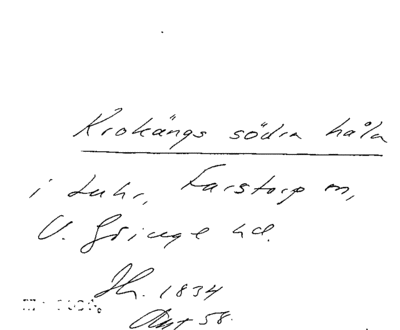 Krokängs södra håla
i Luhr, Farstorp m,
V. Göinge hd.
Jh. 1834
Ant 58.